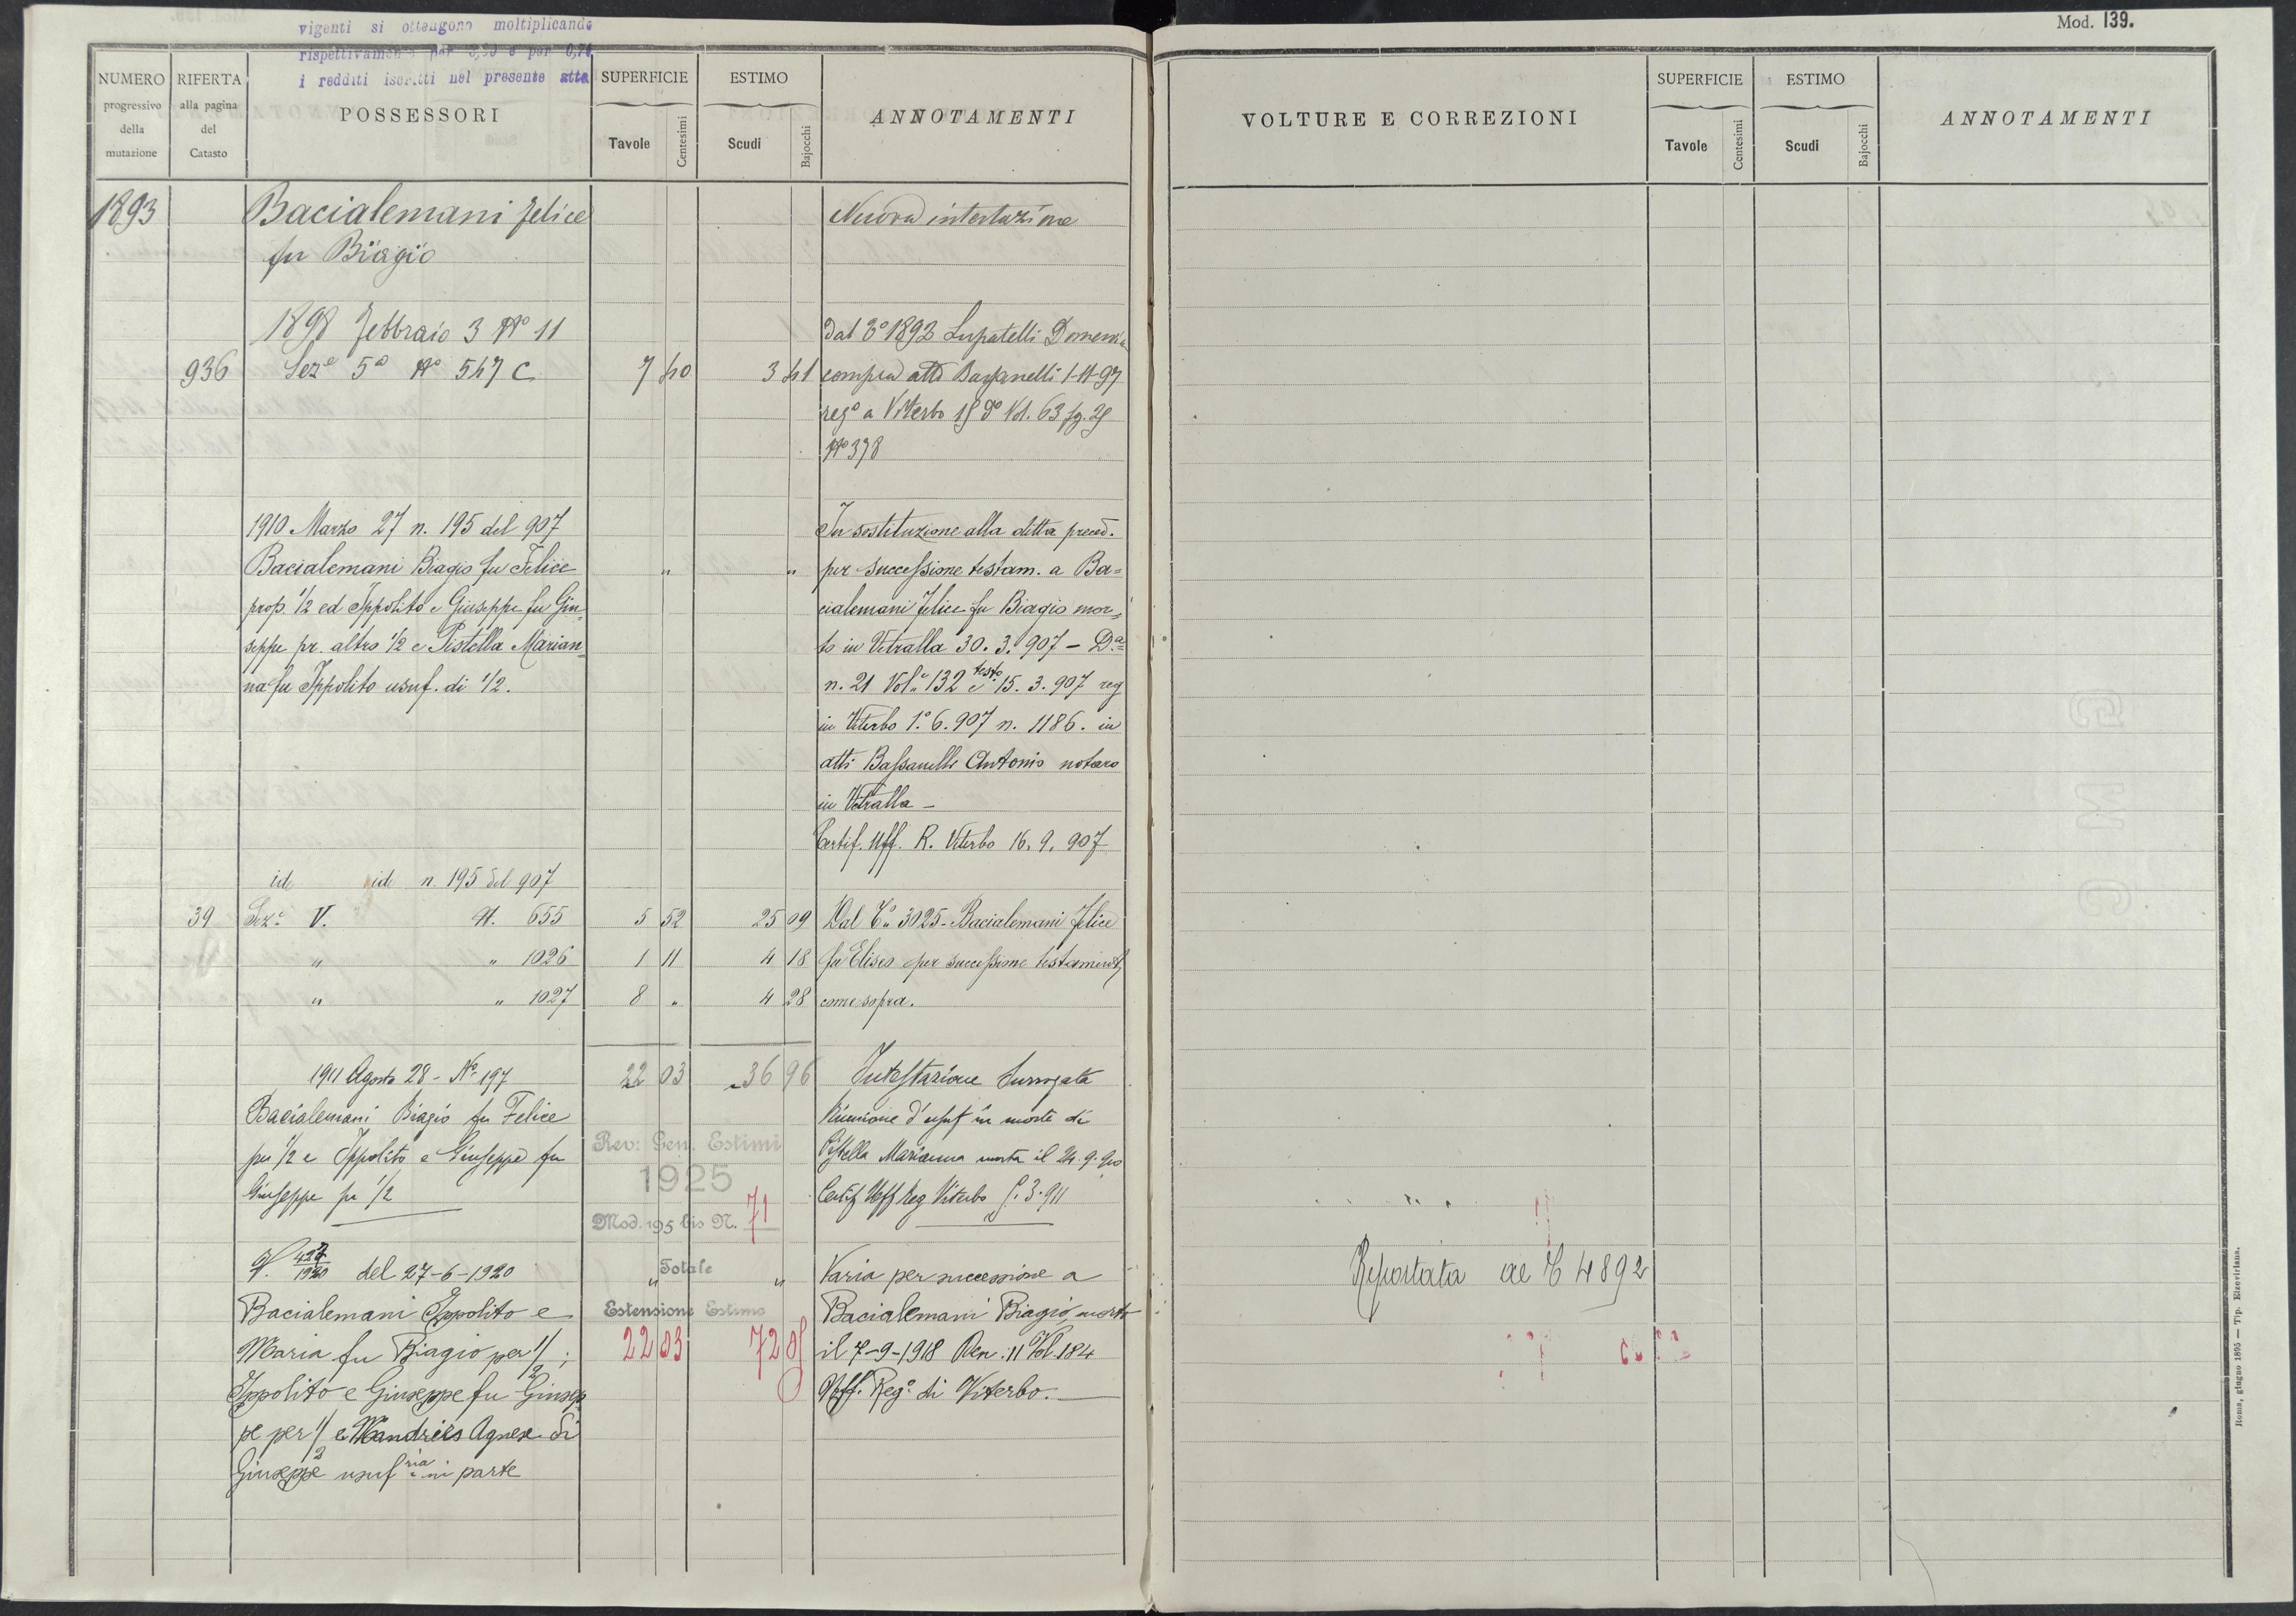 vigenti si ottengono moltiplicando
rispettivamente per e per 0,74
i redditi iscritti nel presente atto
Mod. 139.
NUMERO progressivo della mutazione
RIFERTA alla pagina del Catasto
POSSESSORI
SUPERFICIE
Tavole Centesimi
ESTIMO
Scudi Bajocchi
ANNOTAMENTI
VOLTURE E CORREZIONI
SUPERFICIE
Tavole Centesimi
ESTIMO
Scudi Bajocchi
ANNOTAMENTI
1893 Bacialemani Felice Nuova intestazione
fu Biagio
1898 Febbraio 3 Nº 11 Dal 1893 Lupatelli Domenico
936 Seze 5a Nº 547 C 7 40 3 41 compra atto Bassanelli 1-11-97
rego a Viterbo Vol. 63 fg.
Nº 378
1910 Marzo 27 n. 195 del 907 In sostituzione alla ditta preced.
Bacialemani Biagio fu Felice " " per successione testam. a Ba=
prop. 1/2 ed Ippolito e Giuseppe fu Giu= cialemani Felice fu Biagio mor=
seppe pr. altro 1/2 e Pistella Marian= to in Vetralla 30. 3. 907 – Da=
na fu Ippolito usuf. di 1/2. n. 21 Vole 132 e testo 15. 3. 907 reg
in Viterbo 1º. 6. 907 n. 1186. in
atti Bassanelli Antonio notaro
in Vetralla –
Certif. Uff. R. Viterbo 16. 9. 907
id id n. 195 del 907
39 Seze V. N. 655 5 52 25 09 Dal 3025 - Bacialemani Felice
" " 1026 1 11 4 18 fu Eliseo per successione testament,
" " 1027 8 " 4 28 come sopra.
1911 Agosto 28 - Nº 197 22 03 36 96 Intestazione Surrogata
Bacialemani Biagio fu Felice Riunione d'usuf in morte di
per 1/2 e Ippolito e Giuseppe fu Pistella Marianna morta il 24. 9. 910
Giuseppe per 1/2 Certif Uff Reg Viterbo 3. 911
Rev: Gen. Estimi
1925
Mod. 195 bis N. 71
N. 427/1920 del 27-6-1920 " Totale " Varia per successione a
Bacialemani Ippolito e Estensione Estimo Bacialemani Biagio, morto
Maria fu Biagio per 1/2; 22 03 72 il 7-9-1918 Den. 11 Vol. 184
Ippolito e Giuseppe fu Giusep Uff. Rego di Viterbo.
pe per 1/2 e Agnese di
Giuseppe usufria in parte
Riportata al 4892
Roma, giugno 1895 — Tip. Elzeviriana.